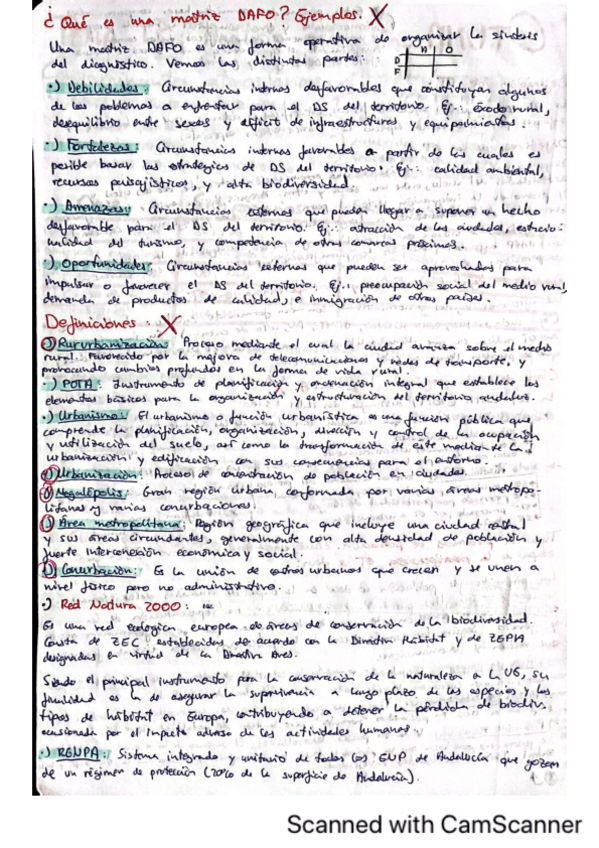 ¿ Qué es una matriz DAFO? Ejemplos. X
Una matriz DAFO es una forma operativa de organizar la síntesis
del diagnóstico. Vemos las distintas partes:
A O
D
F
·) Debilidades: Circunstancias internas desfavorables que constituyan algunos
de los problemas a enfrentar para el DS del territorio. Ej.: éxodo rural,
desequilibrio entre sexos y déficit de infraestructuras y equipamientos.
·) Fortalezas: Circunstancias internas favorables a partir de las cuales es
posible basar las estrategias de DS del territorio. Ej.: calidad ambiental,
recursos paisajísticos, y alta biodiversidad.
·) Amenazas: Circunstancias externas que puedan llegar a suponer un hecho
desfavorable para el DS del territorio. Ej: atracción de las ciudades, estacio-
nalidad del turismo, y competencia de otras comarcas próximas.
·) Oportunidades: Circunstancias externas que pueden ser aprovechadas para
impulsar o favorecer el DS del territorio. Ej.: preocupación social del medio rural,
demanda de productos de calidad, e inmigración de otros países.
Definiciones: X
·) Rururbanización: Proceso mediante el cual la ciudad avanza sobre el medio
rural. Favorecido por la mejora de telecomunicaciones y redes de transporte, y
provocando cambios profundos en la forma de vida rural.
·) POTA: Instrumento de planificación y ordenación integral que establece los
elementos básicos para la organización y estructuración del territorio andaluz.
·) Urbanismo: El urbanismo o función urbanística es una función pública que
comprende la planificación, organización, dirección y control de la ocupación
y utilización del suelo, así como la transformación de este mediante la
urbanización y edificación con sus consecuencias para el entorno.
·) Urbanización: Proceso de concentración de población en ciudades.
·) Megalópolis: Gran región urbana, conformada por varias áreas metropo-
litanas y varias conurbaciones.
·) Área metropolitana: Región geográfica que incluye una ciudad central
y sus áreas circundantes, generalmente con alta densidad de población y
fuerte interconexión económica y social.
·) Conurbación: Es la unión de centros urbanos que crecen y se unen a
nivel físico pero no administrativo.
·) Red Natura 2000:
Es una red ecológica europea de áreas de conservación de la biodiversidad.
Consta de ZEC establecidas de acuerdo con la Directiva Hábitat y de ZEPA
designadas en virtud de la Directiva Aves.
Siendo el principal instrumento para la conservación de la naturaleza a la UE, su
finalidad es la de asegurar la supervivencia a largo plazo de las especies y los
tipos de hábitat en Europa, contribuyendo a detener la pérdida de biodiv.
ocasionada por el impacto adverso de las actividades humanas.
·) RENPA: Sistema integrado y unitario de todos los ENP de Andalucía que gozan
de un régimen de protección (20% de la superficie de Andalucía).
Scanned with CamScanner